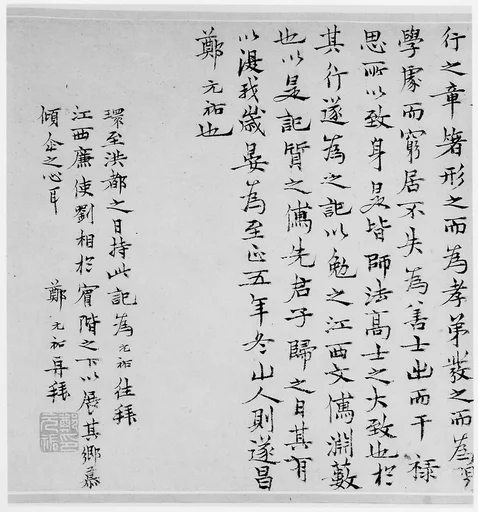 行之章著形之而為孝弟發之而為
學處而窮居不失為善士出而干祿
思所以致身是皆師法高士之大致也於
其行遂為之記以勉之江西文儒淵藪
也以是記質之儒先君子歸之日其有
以漫我歲晏為至正五年冬山人則遂昌
鄭元祐也
環至洪都之日持此記為元祐往拜
江西廉使劉相於賓階之下以展其鄉慕
傾企之心耳
鄭元祐再拜